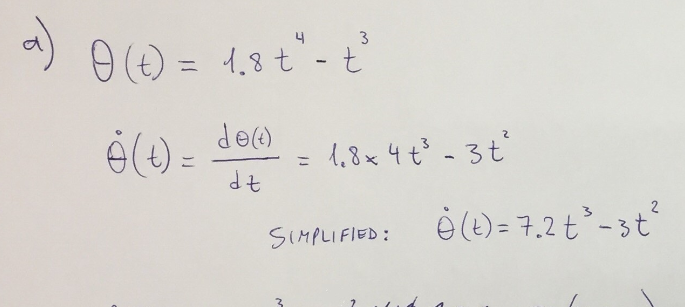 a) θ(t) = 1.8t⁴ - t³
θ̇(t) = dθ(t)/dt = 1.8 × 4t³ - 3t²
SIMPLIFIED: θ̇(t) = 7.2t³ - 3t²